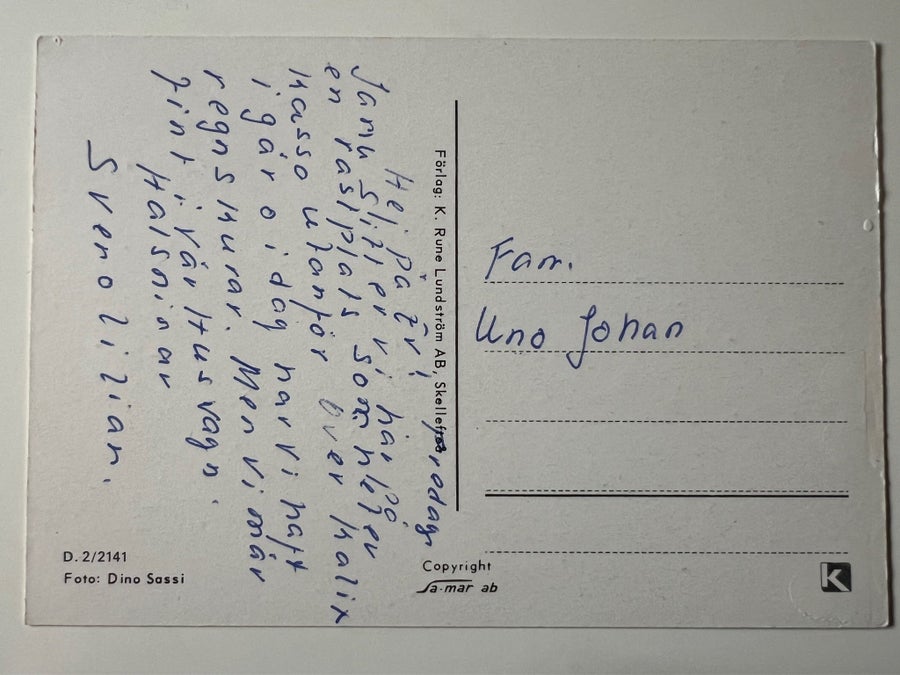 Fredag
Hej på Er!
Ja nu Siter vi här på
en rastplats som heter
over kalix
igår o idag har vi haft
regnskurar. Men vi mår
fint i vår Husvagn.
Halsninar
Sven o Lilian.
Förlag: K. Rune Lundström AB, Skellefteå
Fam.
Uno Johan
D. 2/2141
Foto: Dino Sassi
Copyright
Sa-mar ab
K